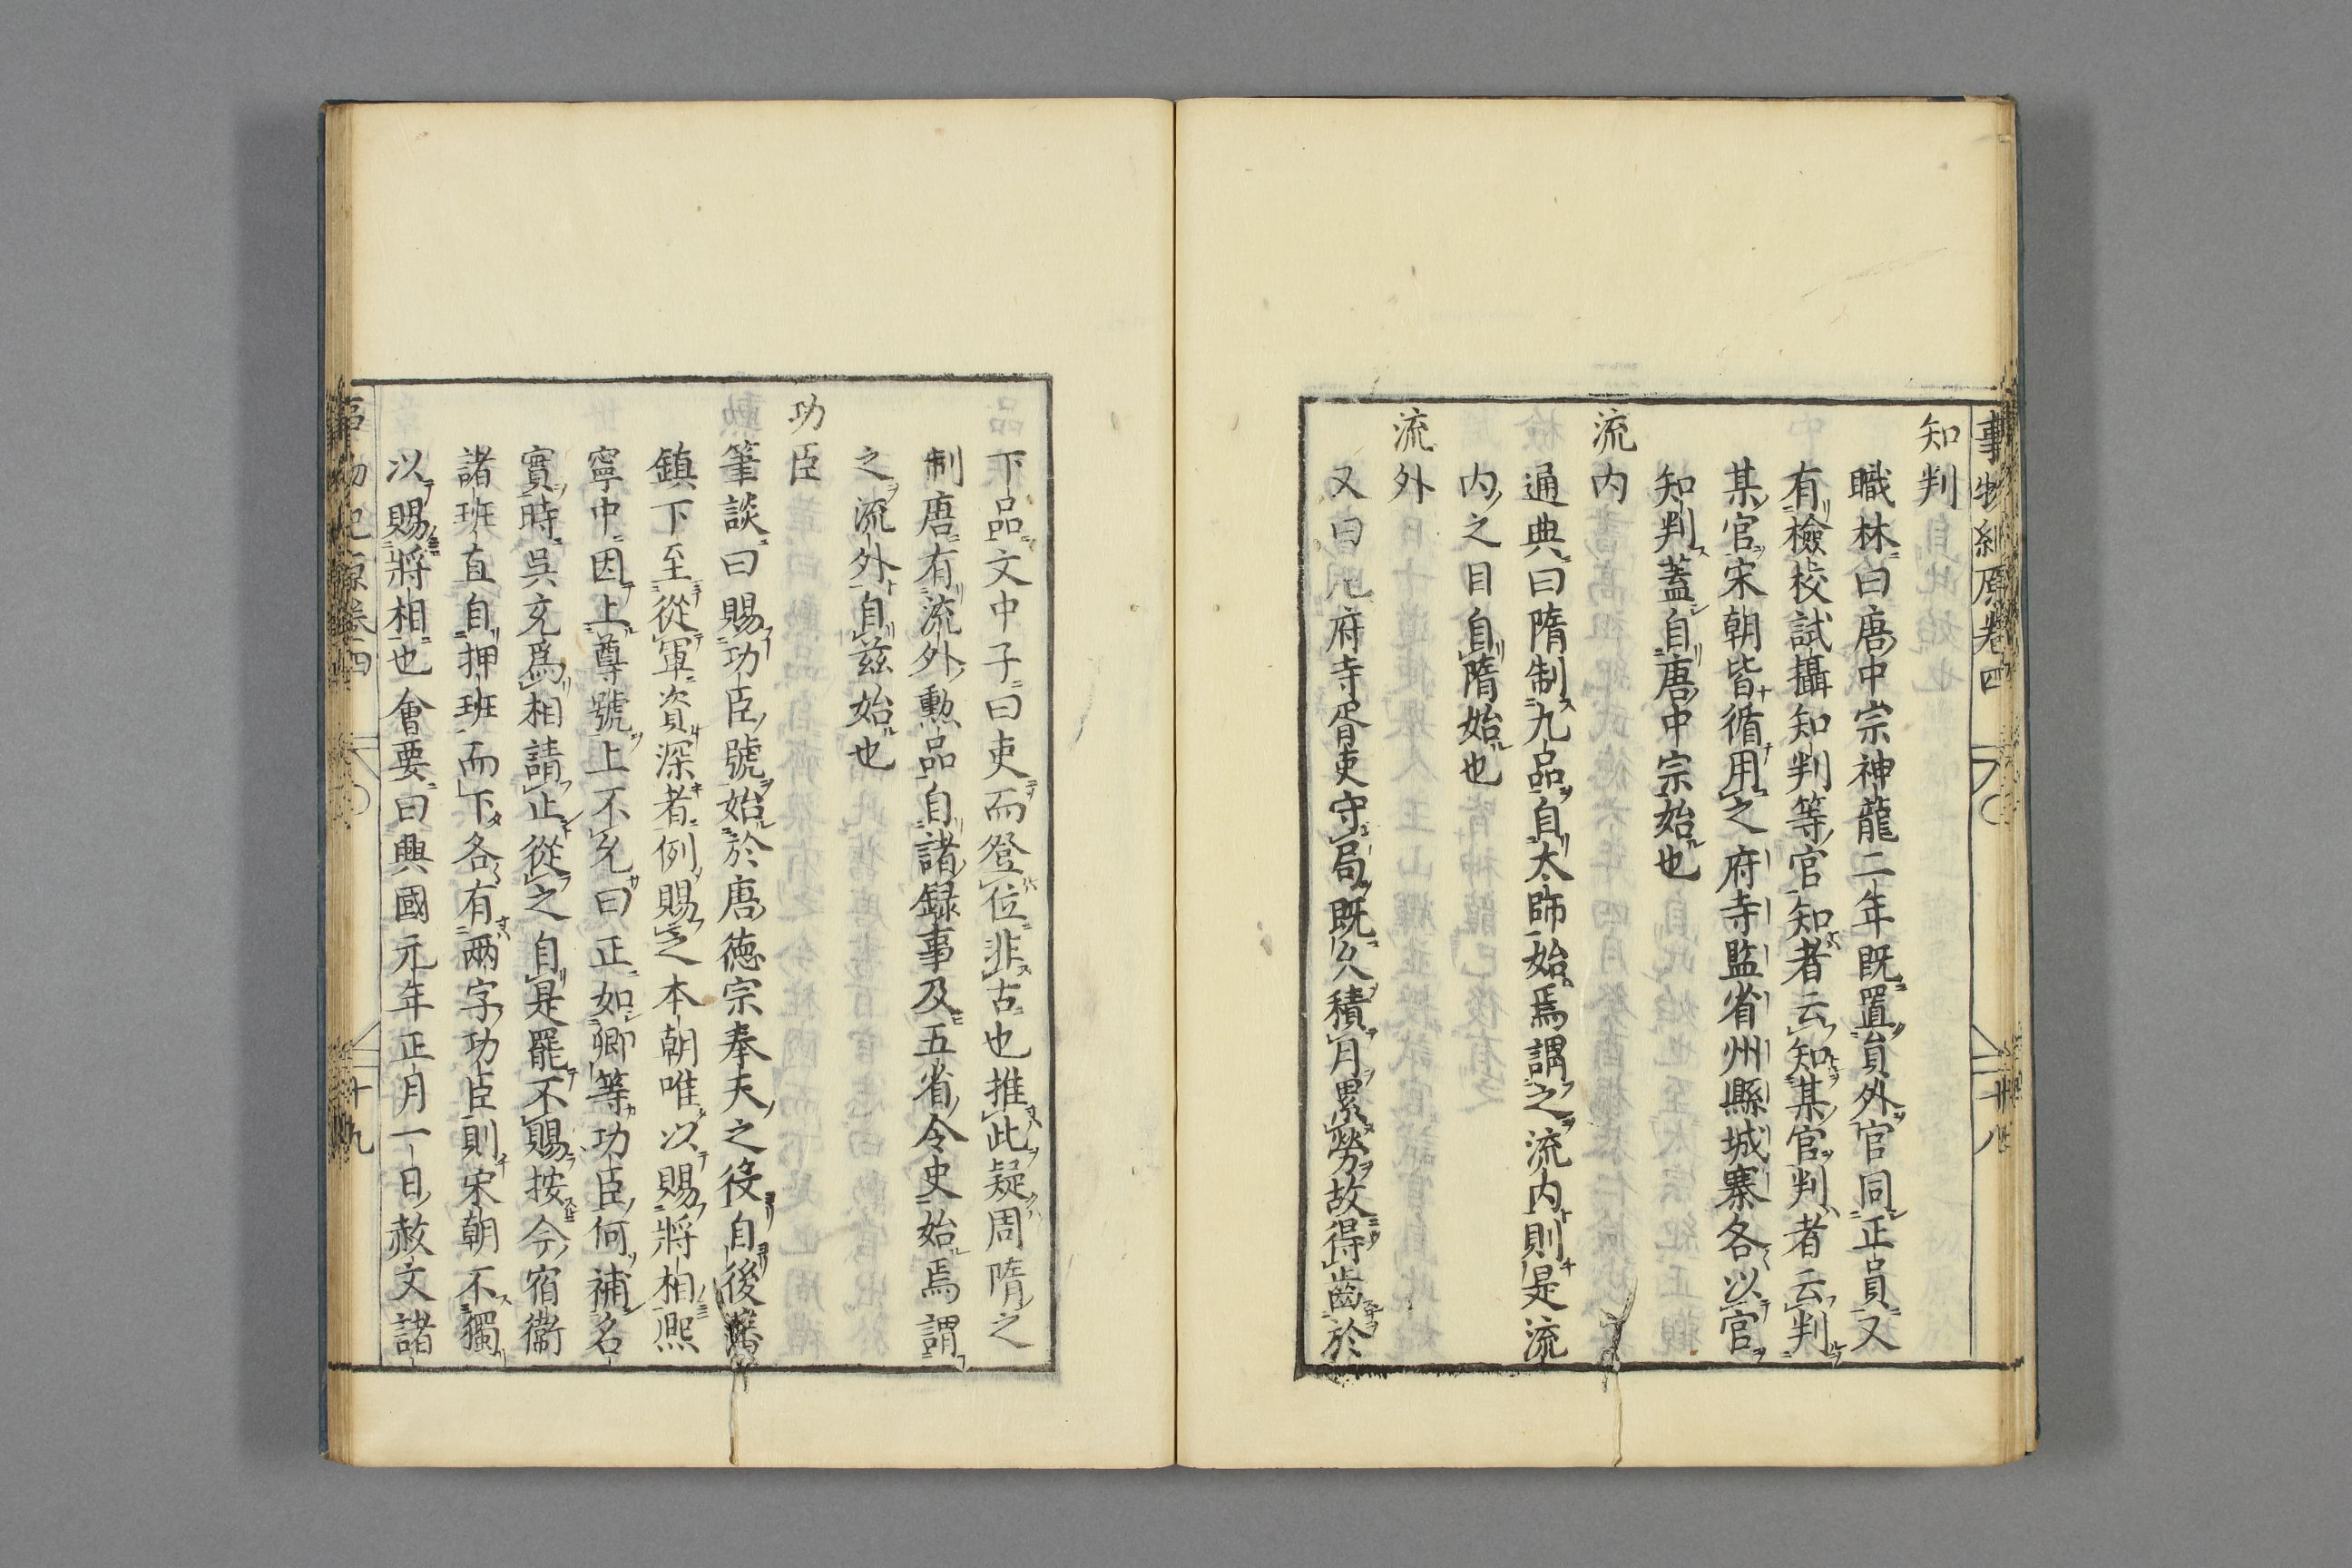 事物紀原卷四 十八
知判
職林曰唐中宗神龍二年既置員外官同正員又
有檢校試攝知判等官知者云知某官判者云判
某官宋朝皆循用之府寺監省州縣城寨各以官
知判蓋自唐中宗始也
流内
通典曰隋制九品自太師始焉謂之流内則是流
内之目自隋始也
流外
又曰凡府寺胥吏守局既久積月累勞故得齒於
下品文中子曰吏而登位非古也推此疑周隋之
制唐有流外勲品自諸録事及五省令史始焉謂
之流外自茲始也
功臣
筆談曰賜功臣號始於唐德宗奉天之役自後藩
鎮下至從軍資深者例賜之本朝唯以賜將相熈
寧中因上尊號上不允曰正如卿等功臣何補名
實時吳充爲相請止從之自是罷不賜按今宿衞
諸班直自押班而下各有兩字功臣則宋朝不獨
以賜將相也會要曰興國元年正月一日赦文諸
事物紀原卷四 十九